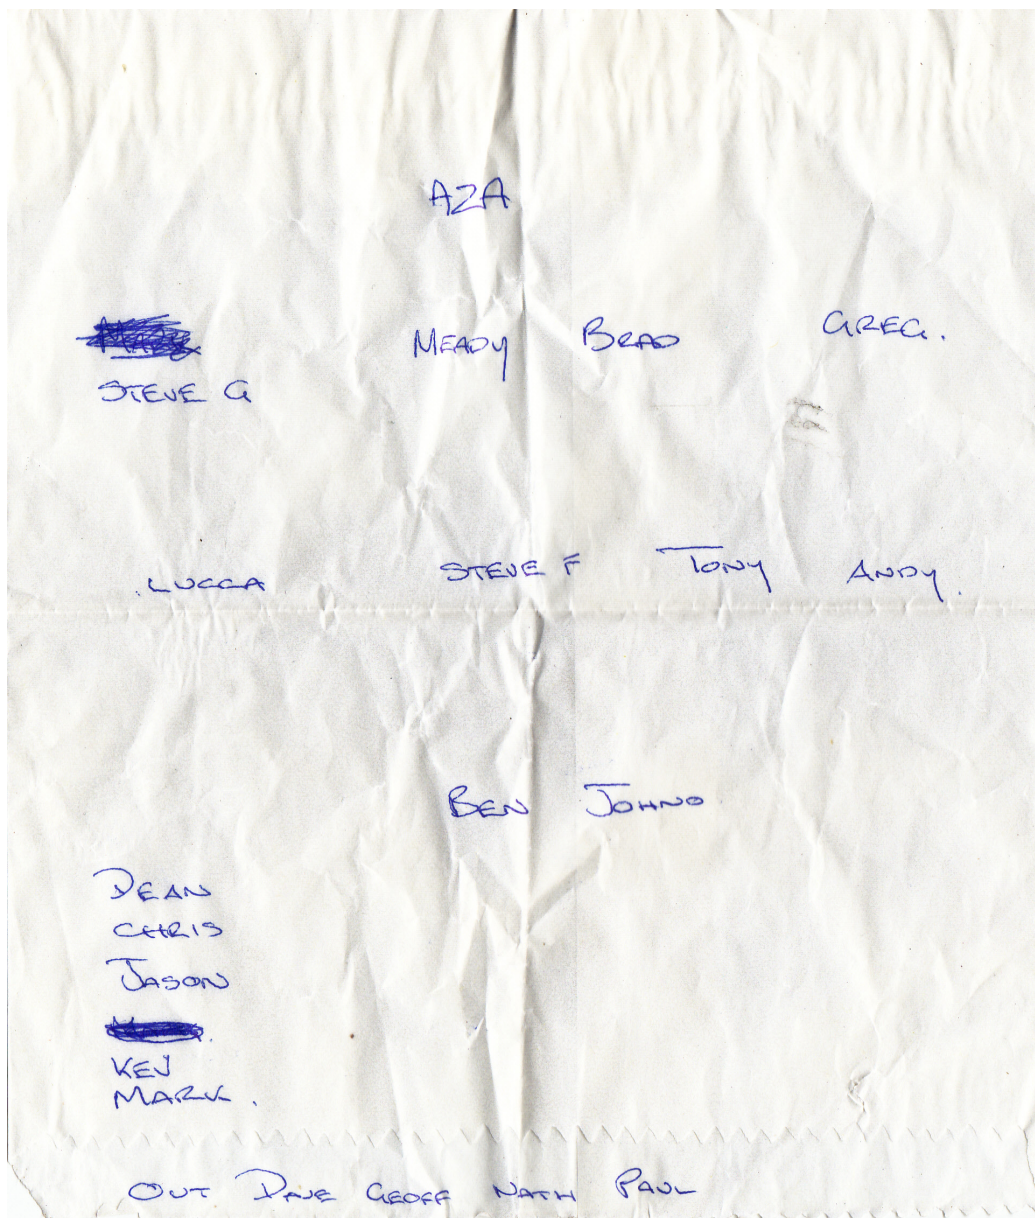 AZA
MEADY BRAD GREG.
STEVE G
LUCCA STEVE F TONY ANDY.
BEN JOHNO
DEAN
CHRIS
JASON
KEV
MARK.
OUT DAVE GEOFF NATH PAUL